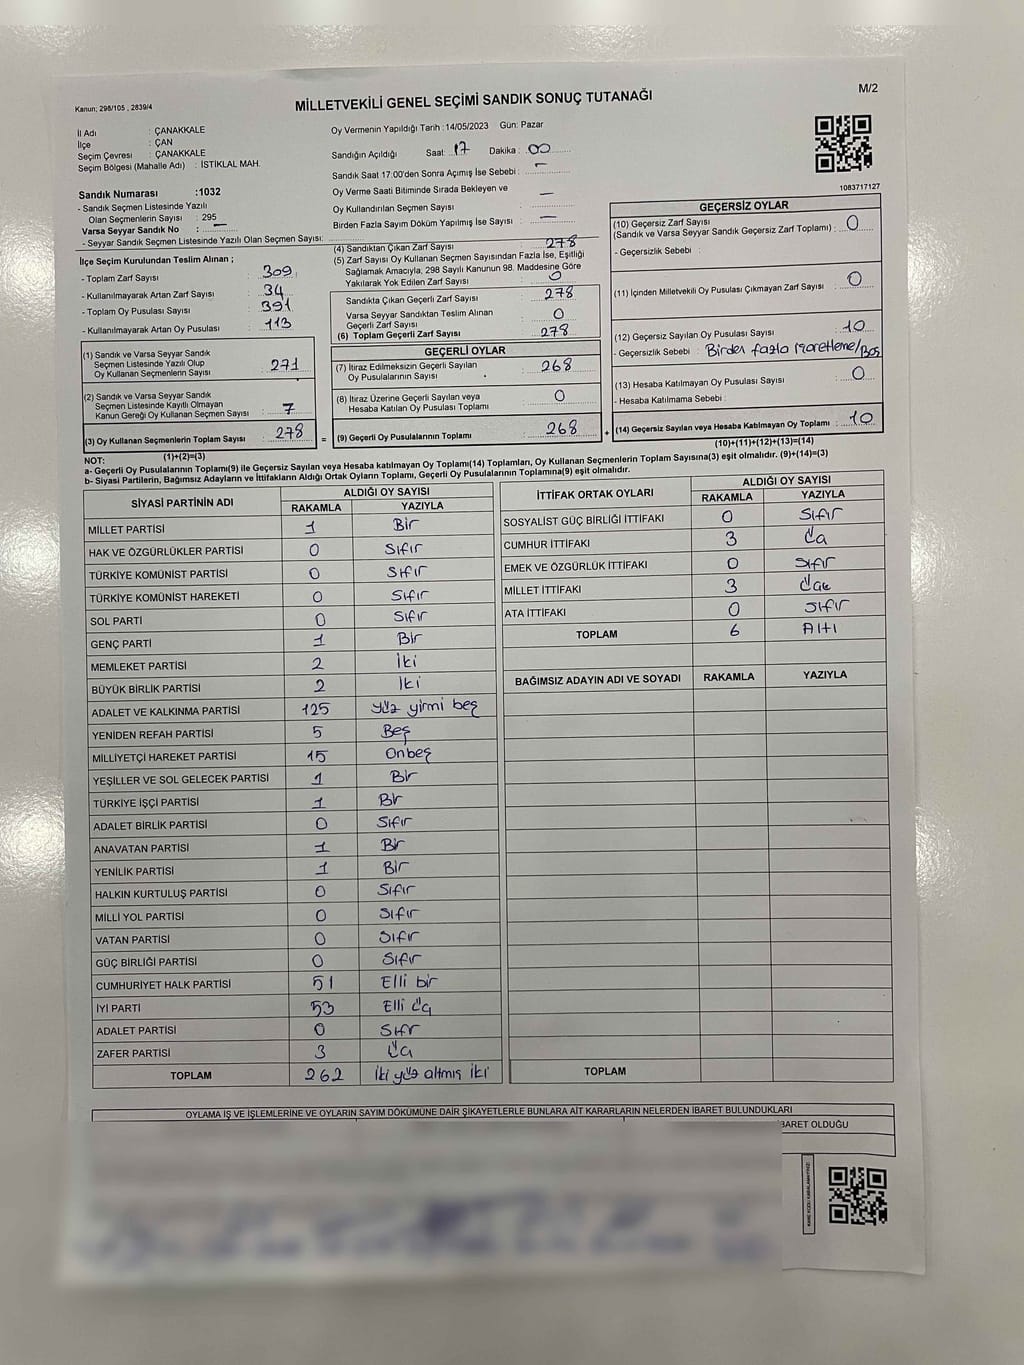 M/2
Kanun; 298/105 , 2839/4
MİLLETVEKİLİ GENEL SEÇİMİ SANDIK SONUÇ TUTANAĞI
İl Adı : ÇANAKKALE
İlçe : ÇAN
Seçim Çevresi : ÇANAKKALE
Seçim Bölgesi (Mahalle Adı) : İSTİKLAL MAH.
Sandık Numarası :1032
- Sandık Seçmen Listesinde Yazılı
Olan Seçmenlerin Sayısı : 295
Varsa Seyyar Sandık No : —
- Seyyar Sandık Seçmen Listesinde Yazılı Olan Seçmen Sayısı:
Oy Vermenin Yapıldığı Tarih : 14/05/2023 Gün: Pazar
Sandığın Açıldığı Saat: 17 Dakika : 00
Sandık Saat 17:00'den Sonra Açımış İse Sebebi : —
Oy Verme Saati Bitiminde Sırada Bekleyen ve
Oy Kullandırılan Seçmen Sayısı —
Birden Fazla Sayım Döküm Yapılmış İse Sayısı : —
1083717127
İlçe Seçim Kurulundan Teslim Alınan ;
- Toplam Zarf Sayısı : 309
- Kullanılmayarak Artan Zarf Sayısı : 34
- Toplam Oy Pusulası Sayısı : 391
- Kullanılmayarak Artan Oy Pusulası : 113
(1) Sandık ve Varsa Seyyar Sandık
Seçmen Listesinde Yazılı Olup
Oy Kullanan Seçmenlerin Sayısı : 271
(2) Sandık ve Varsa Seyyar Sandık
Seçmen Listesinde Kayıtlı Olmayan
Kanun Gereği Oy Kullanan Seçmen Sayısı : 7
(3) Oy Kullanan Seçmenlerin Toplam Sayısı : 278
(1)+(2)=(3)
(4) Sandıktan Çıkan Zarf Sayısı : 278
(5) Zarf Sayısı Oy Kullanan Seçmen Sayısından Fazla İse, Eşitliği
Sağlamak Amacıyla, 298 Sayılı Kanunun 98. Maddesine Göre
Yakılarak Yok Edilen Zarf Sayısı : 0
Sandıkta Çıkan Geçerli Zarf Sayısı : 278
Varsa Seyyar Sandıktan Teslim Alınan
Geçerli Zarf Sayısı : 0
(6) Toplam Geçerli Zarf Sayısı : 278
GEÇERLİ OYLAR
(7) İtiraz Edilmeksizin Geçerli Sayılan
Oy Pusulalarının Sayısı : 268
(8) İtiraz Üzerine Geçerli Sayılan veya
Hesaba Katılan Oy Pusulası Toplamı : 0
= (9) Geçerli Oy Pusulalarının Toplamı : 268 +
GEÇERSİZ OYLAR
(10) Geçersiz Zarf Sayısı
(Sandık ve Varsa Seyyar Sandık Geçersiz Zarf Toplamı) : 0
- Geçersizlik Sebebi :
(11) İçinden Milletvekili Oy Pusulası Çıkmayan Zarf Sayısı : 0
(12) Geçersiz Sayılan Oy Pusulası Sayısı : 10
- Geçersizlik Sebebi : Birden fazla işaretleme/Boş
(13) Hesaba Katılmayan Oy Pusulası Sayısı : 0
- Hesaba Katılmama Sebebi :
(14) Geçersiz Sayılan veya Hesaba Katılmayan Oy Toplamı : 10
(10)+(11)+(12)+(13)=(14)
NOT:
a- Geçerli Oy Pusulalarının Toplamı(9) ile Geçersiz Sayılan veya Hesaba katılmayan Oy Toplamı(14) Toplamları, Oy Kullanan Seçmenlerin Toplam Sayısına(3) eşit olmalıdır. (9)+(14)=(3)
b- Siyasi Partilerin, Bağımsız Adayların ve İttifakların Aldığı Ortak Oyların Toplamı, Geçerli Oy Pusulalarının Toplamına(9) eşit olmalıdır.
SİYASİ PARTİNİN ADI ALDIĞI OY SAYISI
RAKAMLA YAZIYLA
MİLLET PARTİSİ 1 Bir
HAK VE ÖZGÜRLÜKLER PARTİSİ 0 Sıfır
TÜRKİYE KOMÜNİST PARTİSİ 0 Sıfır
TÜRKİYE KOMÜNİST HAREKETİ 0 Sıfır
SOL PARTİ 0 Sıfır
GENÇ PARTİ 1 Bir
MEMLEKET PARTİSİ 2 İki
BÜYÜK BİRLİK PARTİSİ 2 İki
ADALET VE KALKINMA PARTİSİ 125 yüz yirmi beş
YENİDEN REFAH PARTİSİ 5 Beş
MİLLİYETÇİ HAREKET PARTİSİ 15 Onbeş
YEŞİLLER VE SOL GELECEK PARTİSİ 1 Bir
TÜRKİYE İŞÇİ PARTİSİ 1 Bir
ADALET BİRLİK PARTİSİ 0 Sıfır
ANAVATAN PARTİSİ 1 Bir
YENİLİK PARTİSİ 1 Bir
HALKIN KURTULUŞ PARTİSİ 0 Sıfır
MİLLİ YOL PARTİSİ 0 Sıfır
VATAN PARTİSİ 0 Sıfır
GÜÇ BİRLİĞİ PARTİSİ 0 Sıfır
CUMHURİYET HALK PARTİSİ 51 Elli bir
İYİ PARTİ 53 Elli üç
ADALET PARTİSİ 0 Sıfr
ZAFER PARTİSİ 3 Üç
TOPLAM 262 iki yüz altmış iki
İTTİFAK ORTAK OYLARI ALDIĞI OY SAYISI
RAKAMLA YAZIYLA
SOSYALİST GÜÇ BİRLİĞİ İTTİFAKI 0 Sıfır
CUMHUR İTTİFAKI 3 Üç
EMEK VE ÖZGÜRLÜK İTTİFAKI 0 Sıfır
MİLLET İTTİFAKI 3
ATA İTTİFAKI 0 Sıfır
TOPLAM 6 Altı
BAĞIMSIZ ADAYIN ADI VE SOYADI RAKAMLA YAZIYLA
TOPLAM
OYLAMA İŞ VE İŞLEMLERİNE VE OYLARIN SAYIM DÖKÜMÜNE DAİR ŞİKAYETLERLE BUNLARA AİT KARARLARIN NELERDEN İBARET BULUNDUKLARI
BARET OLDUĞU